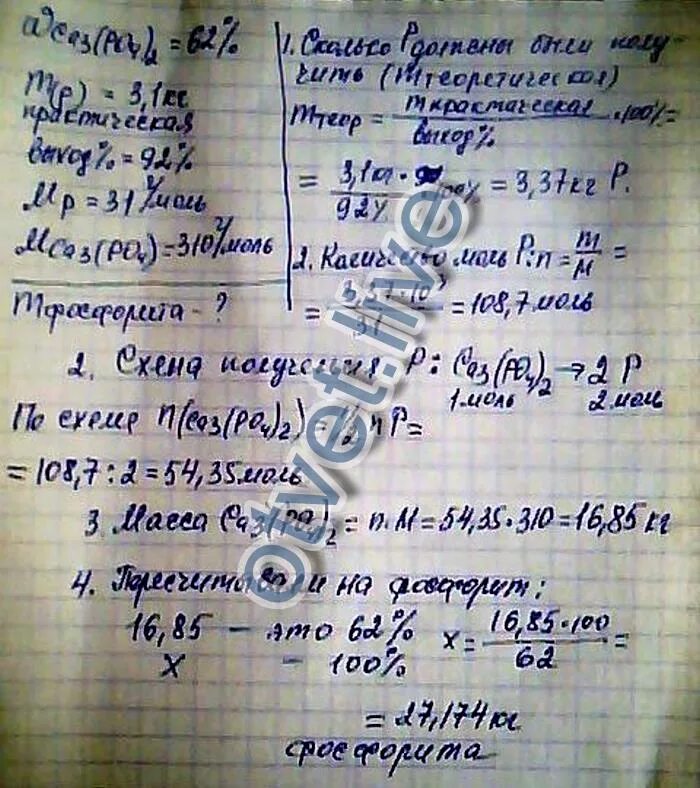 ωCa3(PO4)2 = 62%
m(p) = 3,1 кг
практическая
выход% = 92%
Mp = 31 г/моль
MCa3(PO4) = 310 г/моль
mфосфорита - ?
1. Сколько P должены были полу-
чить (mтеоретическая)
mтеор = mпрактическая / выход% · 100% =
= 3,1кг · 100% / 92% = 3,37 кг P.
2. Количество моль P: n = m/M =
= 3,37·10³ / 31 = 108,7 моль
2. Схема получения P: Ca3(PO4)2 → 2 P
1 моль 2 моль
По схеме n(Ca3(PO4)2) = 1/2 n P =
= 108,7 : 2 = 54,35 моль
3. Масса Ca3(PO4)2 = n·M = 54,35·310 = 16,85 кг
4. Пересчитываем на фосфорит:
16,85 – это 62% x = 16,85·100 / 62 =
x – 100%
= 27,174 кг
фосфорита
otvet.live